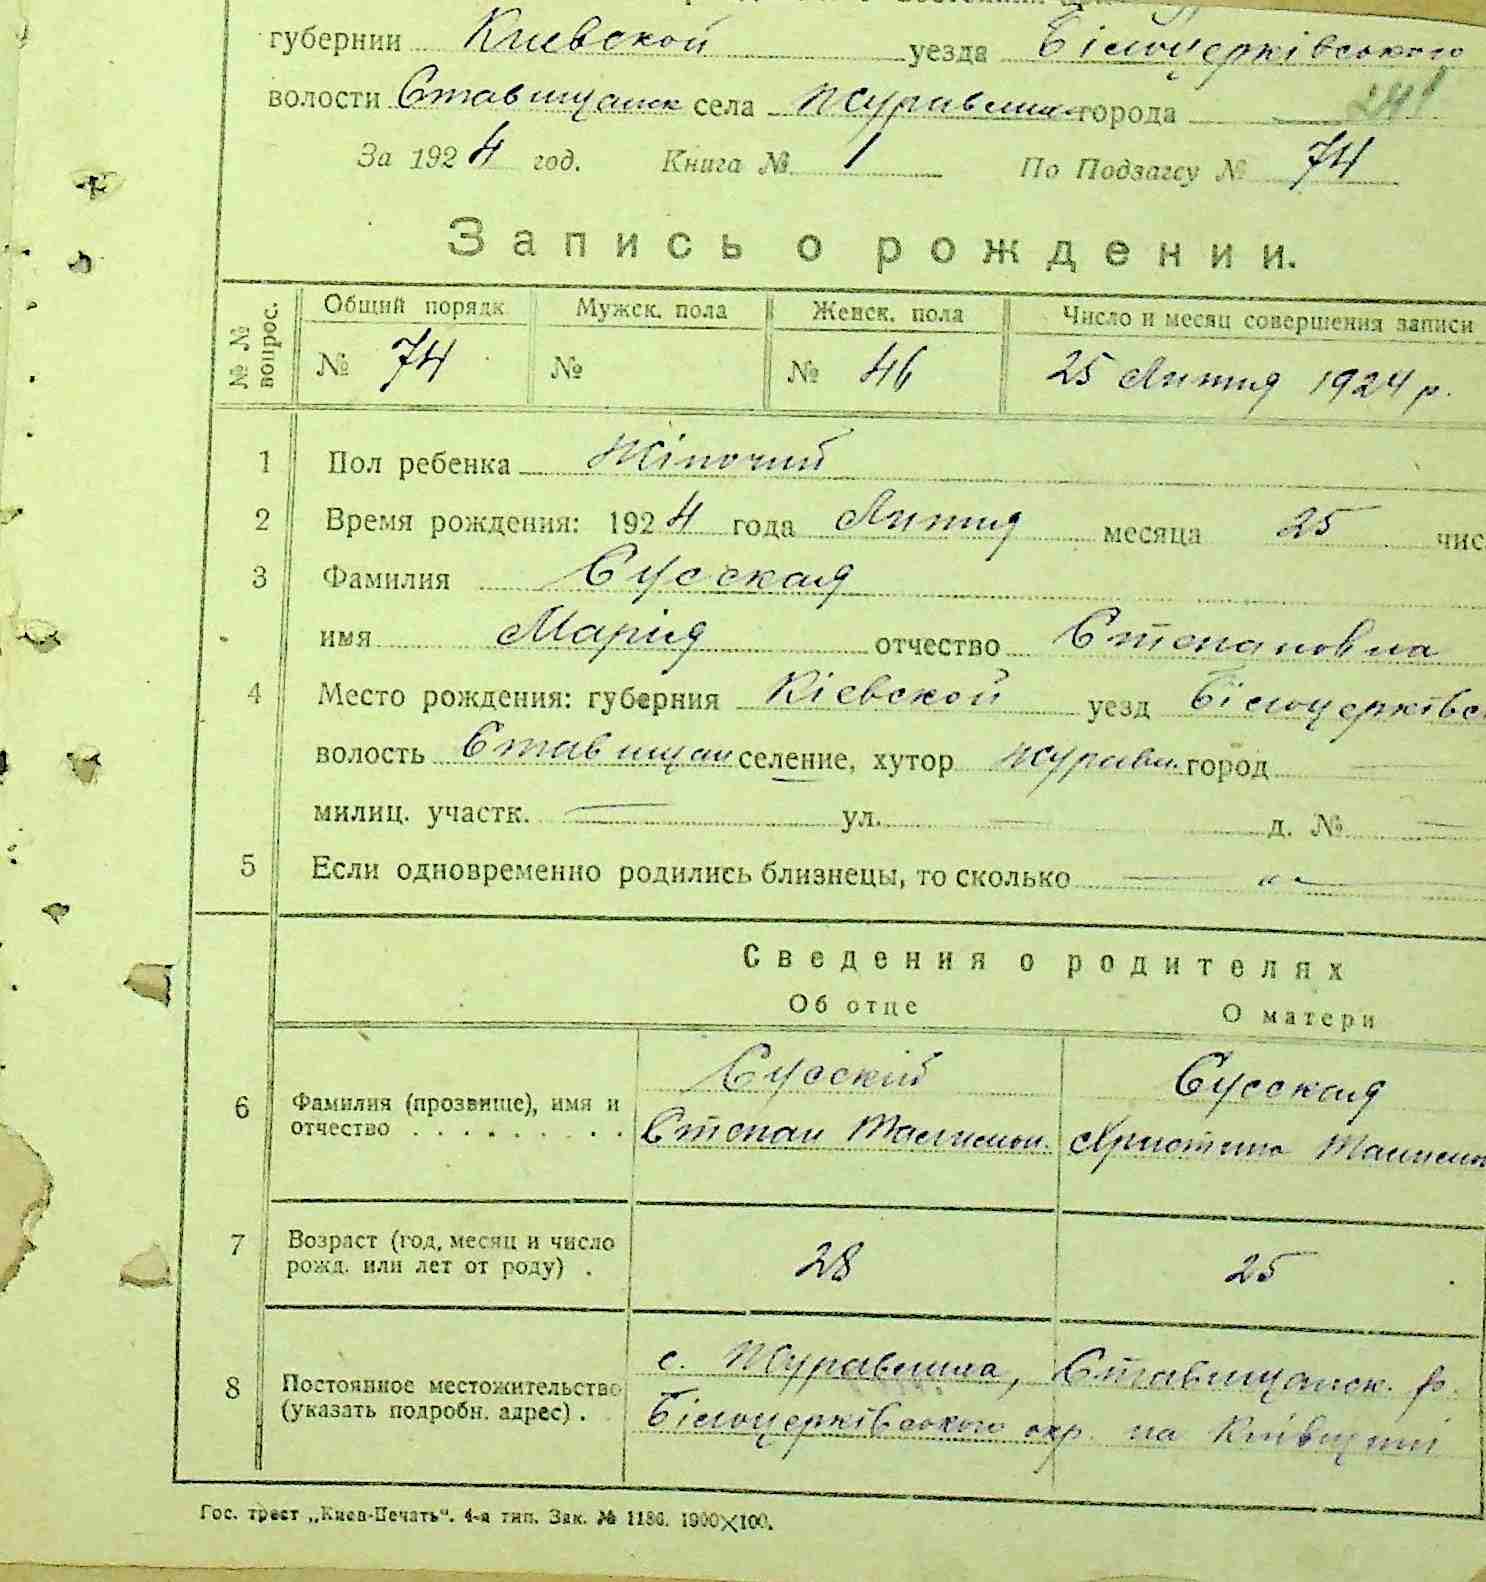 губернии Киевской уезда Білоцерківського
волости Ставищанск села Журавлиха города 241
За 1924 год. Книга № 1 По Подзагсу № 74
Запись о рождении.
№ № вопрос. Общий порядк Мужск. пола Женск. пола Число и месяц совершения записи
№ 74 № № 46 25 Липня 1924 р.
1 Пол ребенка Жіночий
2 Время рождения: 1924 года Липня месяца 25 чис
3 Фамилия Сусская
имя Марія отчество Степановна
4 Место рождения: губерния Кіевской уезд Білоцерківс
волость Ставищан селение, хутор Журавл. город
милиц. участк. — ул. — д. № —
5 Если одновременно родились близнецы, то сколько — „ —
Сведения о родителях
Об отце О матери
Сусский Сусская
6 Фамилия (прозвище), имя и
отчество . . . . . . . . . Степан Христина
7 Возраст (год, месяц и число
рожд. или лет от роду) . 28 25
с. Журавлиха, Ставищанск. р.
8 Постоянное местожительство
(указать подробн. адрес) . Білоцерківського окр. на Київщині
Гос. трест „Киев-Печать“. 4-я тип. Зак. № 1186. 1900×100.